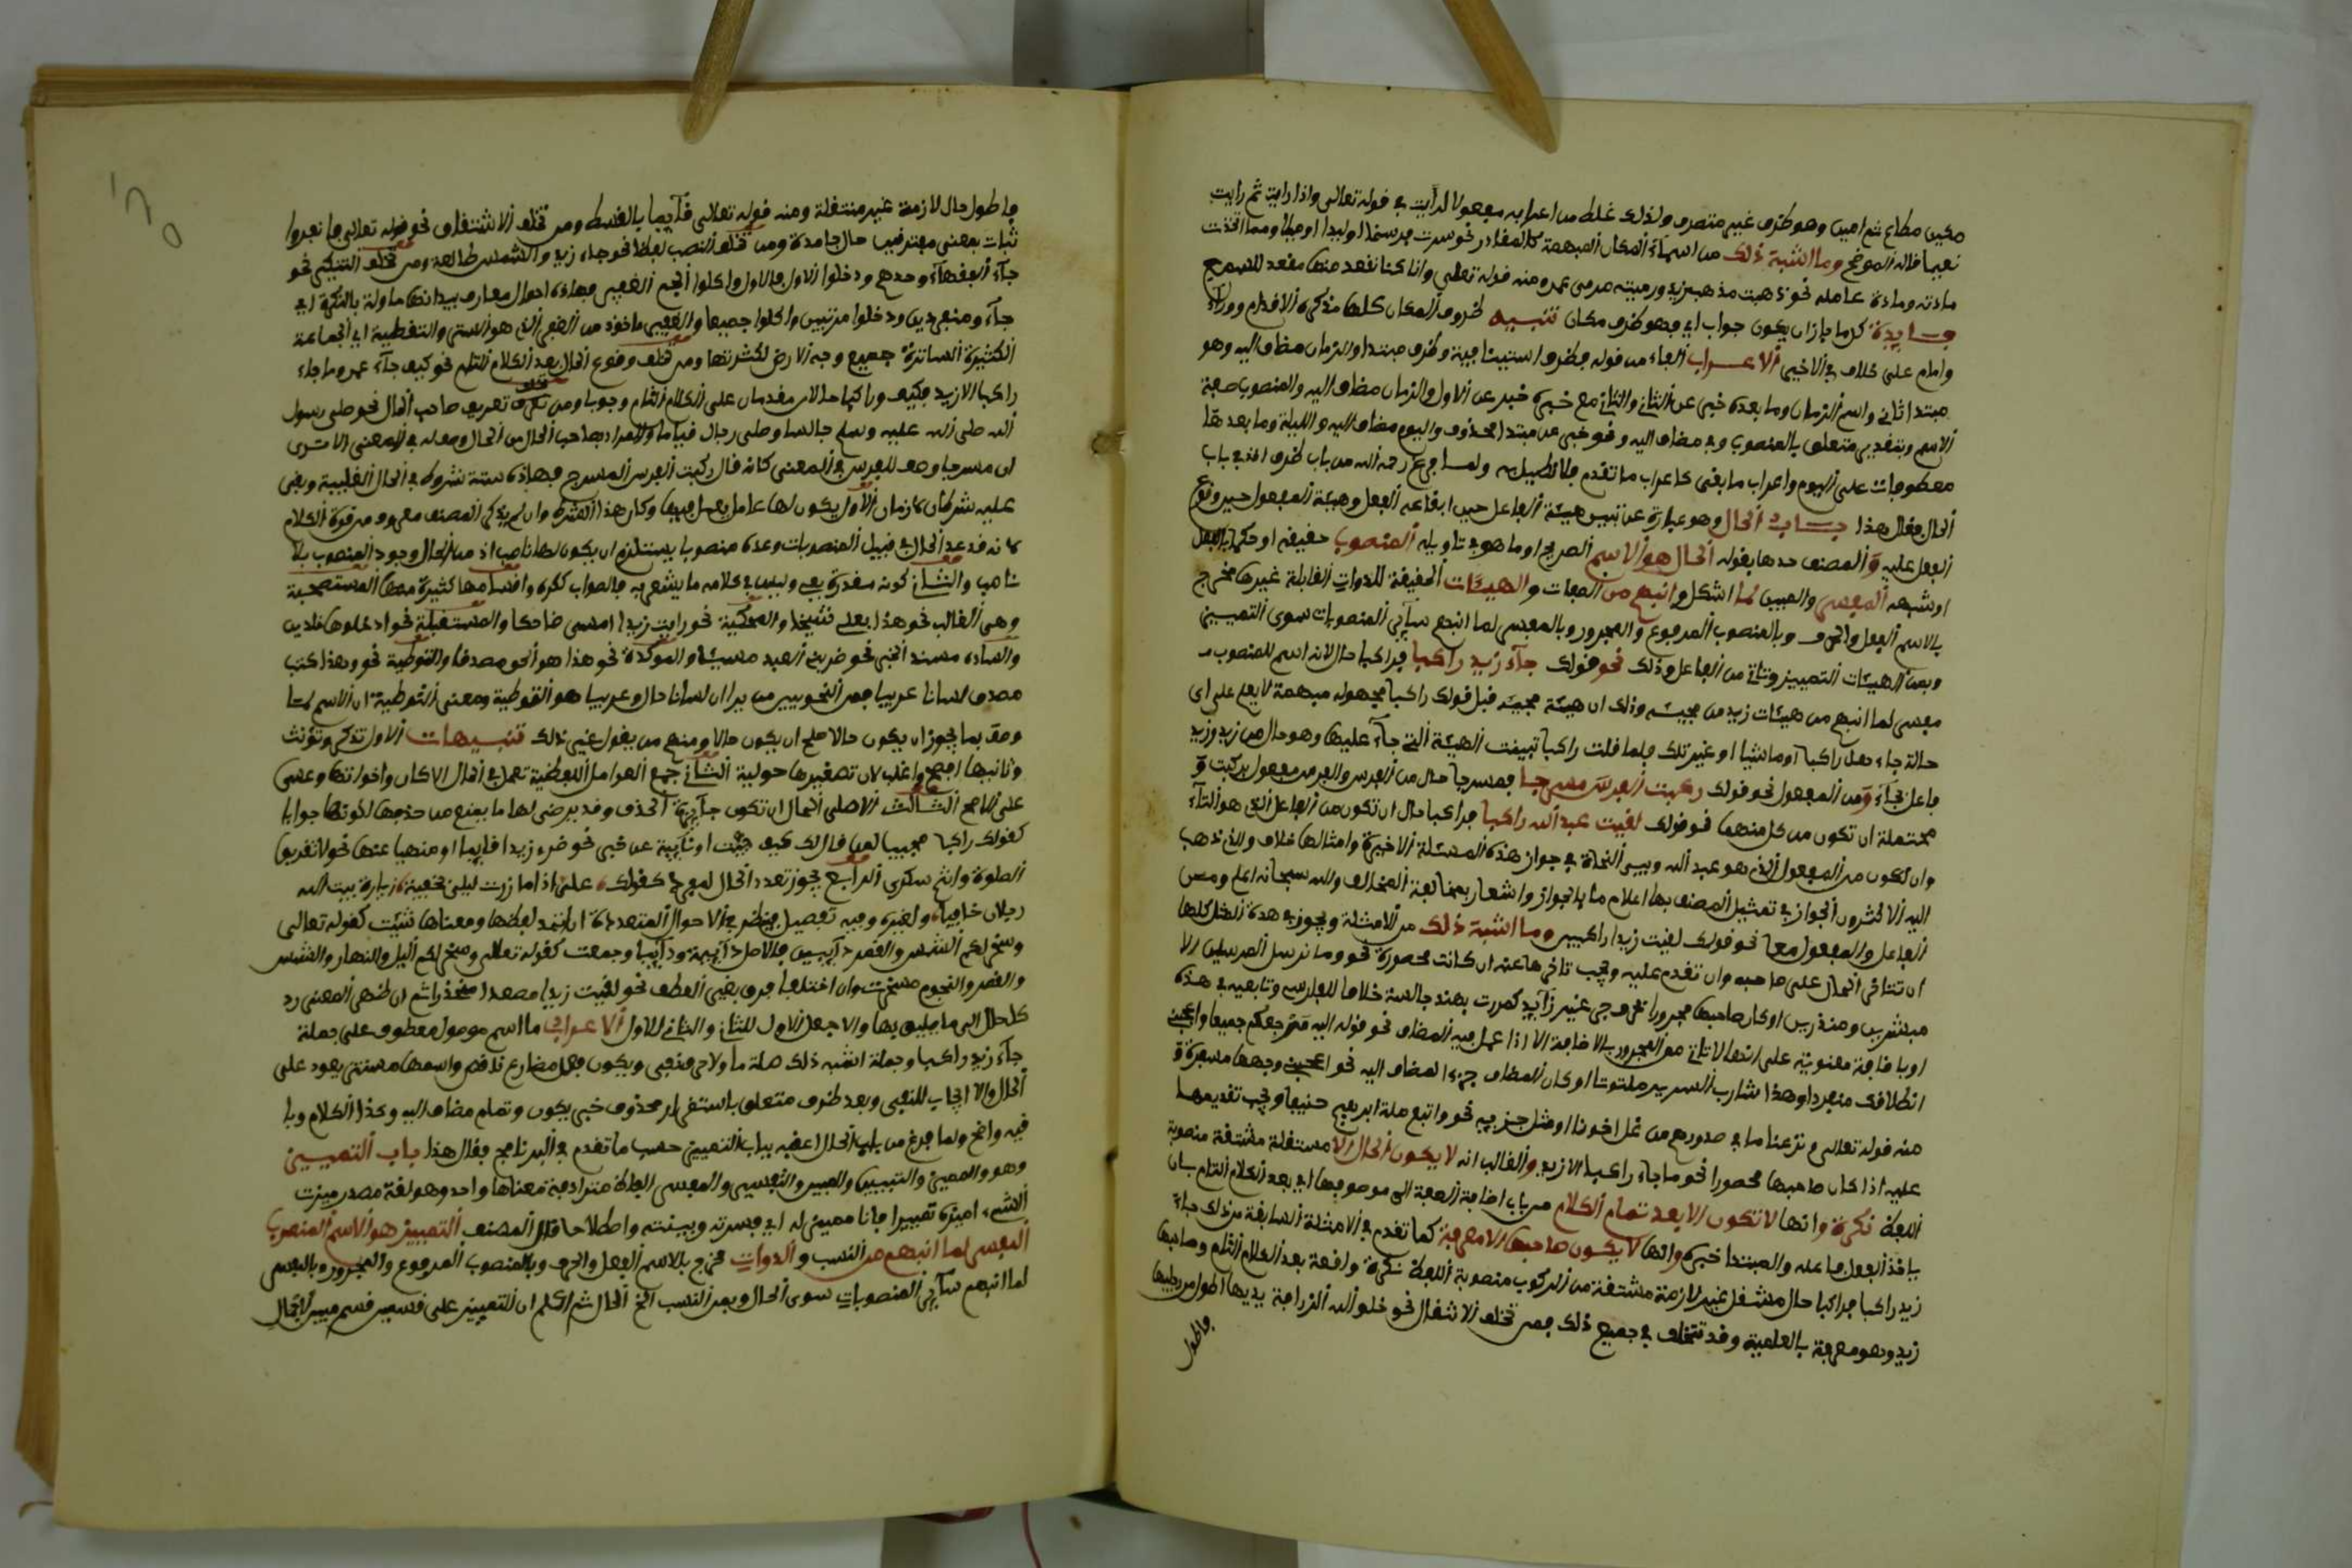 مكين مطاع ثم امين وهو ظرف غير متصرف ولذلك غلط من اعربه مفعولا لرأيت في قوله تعالى واذا رايت ثم رايت
نعيما قاله الموضح وما اشبه ذلك من اسماء المكان المبهمة كالمقادر نحو سرت فرسخا او بريدا او ميلا ومما اتخذت
مادته ومادة عامله نحو ذهبت مذهب زيد ورميته مرمى عمرو ومنه قوله تعلى وانا كنا نقعد منها مقعد للسمع
فايدة كل ما جاز ان يكون جواب اي فهو ظرف مكان تنبيه ظروف المكان كلها مذكرة الا قدام ووراء
وامام على خلاف في الاخير الاعراب الفاء من قوله فظرف استينافية وظرف مبتدا والزمان مضاف اليه وهو
مبتدا ثاني واسم الزمان وما بعده خبر عن الثاني والثاني مع خبره خبر عن الاول والزمان مضاف اليه والمنصوب صفة
الاسم وبتقدير متعلق بالمنصوب وفي مضاف اليه ونحو خبر عن مبتدا محذوف واليوم مضاف اليه والليلة وما بعدها
معطوفات على اليوم واعراب ما بقي كاعراب ما تقدم فلا نطيل به ولما فرغ رحمه الله من باب ظرف اخذ في باب
الحال فقال هذا باب الحال وهو عبارة عن تبيين هيئة الفاعل حين ايقاعه الفعل وهيئة المفعول حين وقوع
الفعل عليه والمصنف حدها بقوله الحال هو الاسم الصريح او ما هو في تاويله المنصوب حقيقة او حكما بالفعل
او شبهه المفسر والمبين لما اشكل وانبهم من الصفات والهيئات الحقيقة للذوات القابلة غيرها مخرج
بالاسم الفعل والحرف وبالمنصوب المرفوع والمجرور وبالمفسر لما انبهم سائر المنصوبات سوى التمييز
وبمن الهيئات التمييز وتاتي من الفاعل وذلك نحو قولك جاء زيد راكبا فراكبا حال لانه اسم للمنصوب
مفسر لما انبهم من هيئات زيد من مجيئه وذلك ان هيئة مجيئه قبل قولك راكبا مجهولة مبهمة لا يعلم على اي
حالة جاء هل راكبا او ماشيا او غير ذلك فلما قلت راكبا تبينت الهيئة التي جاء عليها وهو حال من زيد وزيد
فاعل بجاء ومن المفعول نحو قولك ركبت الفرس مسرجا فمسرجا حال من الفرس والفرس مفعول بركبت و
محتملة ان تكون من كل منهما نحو قولك لقيت عبد الله راكبا فراكبا حال ان تكون من الفاعل الذي هو التاء
وان تكون من المفعول الذي هو عبد الله وبين النحاة في جواز هذه المسئلة الاخيرة وامثالها خلاف والذي ذهب
اليه الاكثرون الجواز في تمثيل المصنف بها اعلام ما بالجواز واشعار بمخالفة المخالف والله سبحانه اعلم ومن
الفاعل والمفعول معا نحو قولك لقيت زيدا راكبين وما اشبه ذلك من الامثلة ويجوز في هذة المثل كلها
ان تتاخر الحال على صاحبه وان تقدم عليه ويجب تاخرها عنه ان كانت محصورة نحو وما نرسل المرسلين الا
مبشرين ومنذرين او كان صاحبها مجرورا بحرف جر غير زايد كمررت بهند جالسة خلافا للفارسي وتابعيه في هذه
او باضافة معنوية على انها لا تاتي من المجرور بالاضافة الا اذا عمل فيه المضاف نحو قوله اليه مرجعكم جميعا واعجبني
انطلاقك منفردا وهذا شارب السويق ملتوتا او كان المضاف جزء المضاف اليه نحو اعجبني وجهها مسفرة و
منه قوله تعالى ونزعنا ما في صدورهم من غل اخوانا او مثل جزيه نحو واتبع ملة ابرهيم حنيفا ويجب تقديمها
عليه اذا كان صاحبها محصورا نحو ما جاء راكبا الا زيد والغالب انه لا يكون الحال الا مستقلة مشتقة منصوبة
اللفظ نكرة وانها لا تكون الا بعد تمام الكلام من باب اضافة الصفة الى موصوفها اي بعد الكلام التام بان
ياخذ الفعل فاعله والمبتدا خبره وانها لا يكون صاحبها الا معرفة كما تقدم في الامثلة السابقة من ذلك جاء
زيد راكبا فراكبا حال منتقل غير لازمة مشتقة من الركوب منصوبة اللفظ نكرة واقعة بعد الكلام التام وصاحبها
زيد وهو معرفة بالعلمية وقد تتخلف في جميع ذلك فمن تخلف الانتقال نحو خلق الله الزرافة يديها اطول من رجليها
فاطول
فاطول حال لازمة غير منتقلة ومنه قوله تعالى قآيما بالقسط ومن تخلف الاشتقاق نحو قوله تعالى فانفروا
ثبات بمعنى مفترقين حال جامدة ومن تخلف النصب لفظا نحو جاء زيد والشمس طالعة ومن تخلف التنكير نحو
جآء الفقهاء وحدهم ودخلوا الاول فالاول واكلوا الجم الغفير فهاذه احوال معارف بيد انها ماولة بالنكرة اي
جآء ومنفردين ودخلوا مرتبين واكلوا جميعا والغفير ماخوذ من الغفر الذي هو الستر والتغطية اي الجماعة
الكثيرة الساترة جميع وجه الارض لكثرتها ومن تخلف وقوع الحال بعد الكلام التام نحو كيف جآء عمرو وما جاء
راكبا الا زيد فكيف وراكبا حالان مقدمان على الكلام التام وجوبا ومن تخلف تعريف صاحب الحال نحو صلى رسول
الله صلى الله عليه وسلم جالسا وصلى رجال قياما والمراد بصاحب الحال من الحال وصف له في المعنى الا ترى
ان مسرجا وصف للفرس في المعنى كانه قال ركبت الفرس المسرج فهاذه ستة شروط في الحال الغلبية وبقي
عليه شرطان كازمان الاول يكون لها عامل يعمل فيها وكان هذا الشرط وان لم يذكر المصنف مفهوم من قوة الكلام
لانه قد عد الحال في قبيل المنصوبات وعده منصوبا يستلزم ان يكون لها ناصب اذ من المحال وجود المنصوب بلا
ناصب والثاني كونه مقدرة بفي وليس في كلامه ما يشعر به فالصواب ذكره واقسامها كثيرة منها المستصحبة
وهي الغالب نحو هذا بعلي شيخا والمحكية نحو رايت زيدا امس ضاحكا والمستقبلة نحو ادخلوها خالدين
والسادة مسند الخبر نحو ضربي العبد مسيئا والموكدة نحو هذا هو الحق مصدقا والموطية نحو وهذا كتب
مصدق لسانا عربيا فمن النحويين من يرا ان لسانا حال وعربيا هو الموطية ومعنى التوطية ان الاسم لما
وصف بما يجوز ان يكون حالا صلح ان يكون حالا ومنهم من يقول غير ذلك تنبيهات الاول تذكر وتؤنث
وتانيثها افصح واغلب لان تصغيرها حويلة الثاني جميع العوامل اللفظية تعمل في الحال الا كان واخواتها وعسى
على الاصح الثالث الاصل في الحال ان تكون جآيزة الحذف وقد يعرض لها ما يمنع من حذفها لكونها جوابا
كقولك راكبا مجيبا لمن قال لك كيف جئت او نايبة عن خبر نحو ضربي زيدا قايما او منهيا عنها نحو لا تقربوا
الصلوة وانتم سكرى الرابع يجوز تعدد الحال لمفرد كقولك علي اذا ما زرت ليلى بخفية زيارة بيت الله
رجلان حافيا ولغيره وفيه تفصيل ينظر في الاحوال المتعددة ان اتحد لفظها ومعناها ثنيت كقوله تعالى
وسخر لكم الشمس والقمر دآيبين فالاصل دآيبة ودآيبا وجمعت كقوله تعالى وسخر لكم اليل والنهار والشمس
والقمر والنجوم مسخرت وان اختلفا فرق بغير العطف نحو لقيت زيدا مصعدا منحدرا ثم ان ظهر المعنى رد
كل حال الى ما يليق بها والا جعل الاول للثاني والثاني للاول الاعراب ما اسم موصول معطوف على جملة
جآء زيد راكبا وجملة اشبه ذلك صلة ما ولا حرف نفي ويكون فعل مضارع ناقص واسمها مستتر يعود على
الحال والا ايجاب للنفي وبعد ظرف متعلق باستقرار محذوف خبر يكون وتمام مضاف اليه وكذا الكلام وبا
فيه واضح ولما فرغ من باب الحال اعقبه بباب التمييز حسب ما تقدم في البرنامج فقال هذا باب التمييز
وهو والمميز والتبيين والمبين والتفسير والمفسر الفاظ مترادفة معناها واحد وهو لغة مصدر ميزت
الشيء اميزه تمييزا فانا مميز له اي فسرته وبينته واصطلاحا قال المصنف التمييز هو الاسم المنصوب
المفسر لما انبهم من النسب والذوات مخرج بالاسم الفعل والحرف وبالمنصوب المرفوع والمجرور وبالمفسر
لما انبهم سآير المنصوبات سوى الحال وبمن النسب الخ الحال ثم اعلم ان التمييز على قسمين قسم مبين لاجمال